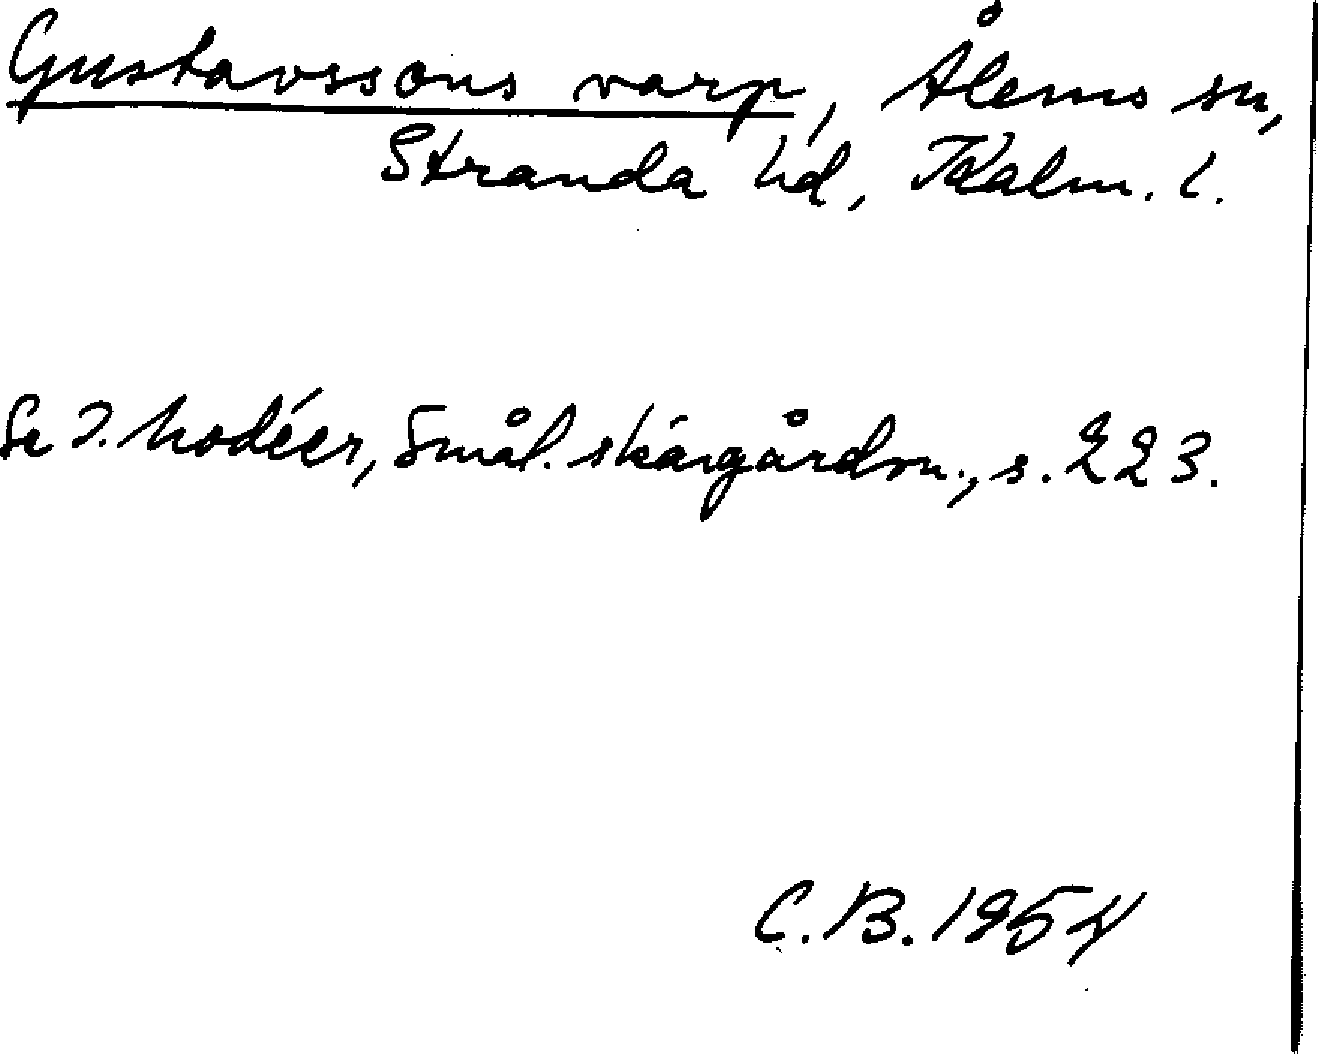 Gustavssons varp, Ålems sn,
Stranda hd, Kalm. l.
Se I. Modéer, Smål. skärgårdsn., s. 223.
C.B. 1954